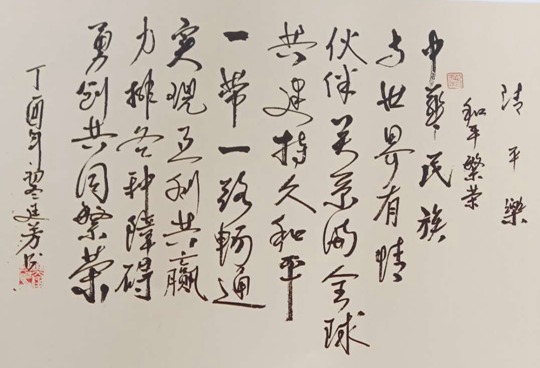 清平樂
和平繁荣
中華民族
与世界有情
伙伴关系满全球
共建持久和平
一带一路畅通
实现互利共赢
力排各种障碍
勇创共同繁荣
丁酉年翟廷芳书